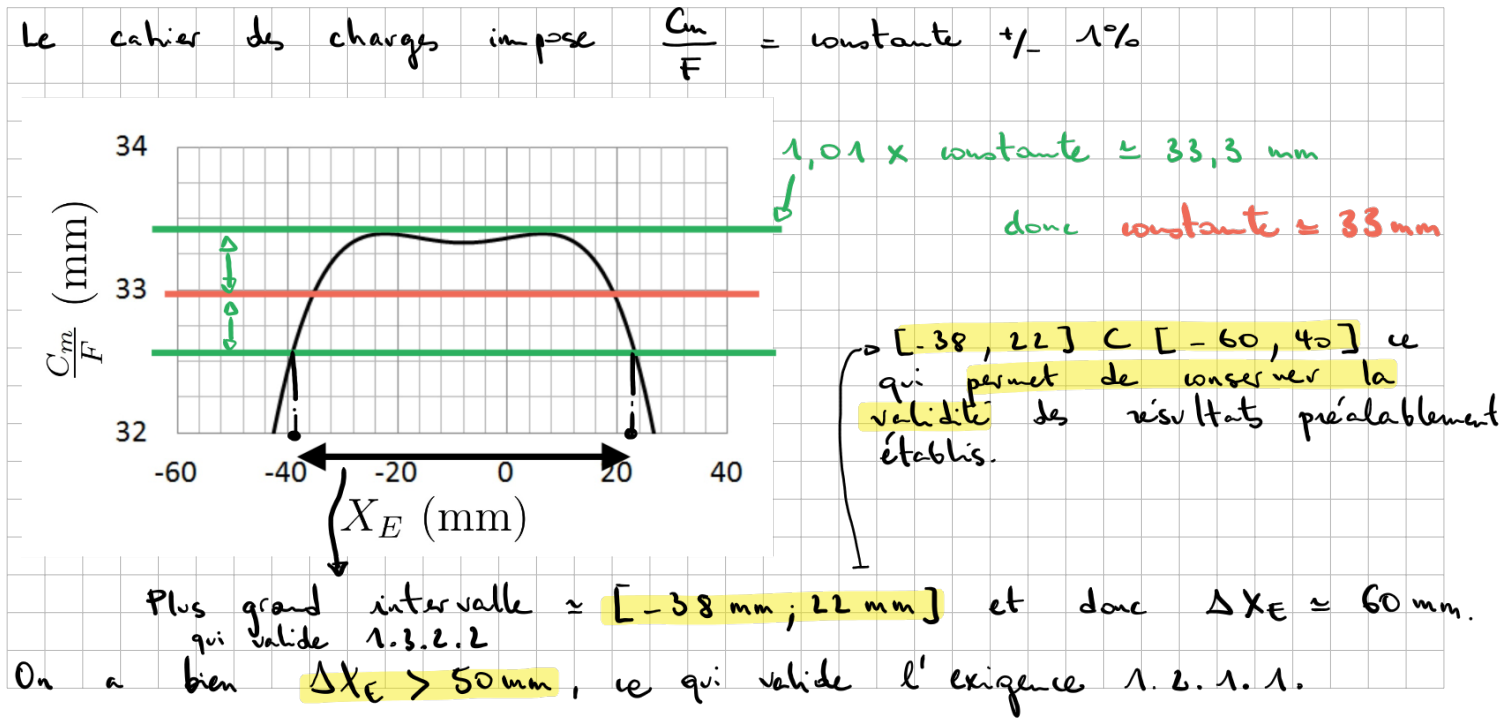 Le cahier des charges impose Cm/F = constante +/- 1%
34
33
32
Cm/F (mm)
-60 -40 -20 0 20 40
X_E (mm)
1,01 x constante ≃ 33,3 mm
donc constante ≃ 33 mm
[-38, 22] ⊂ [-60, 40] ce
qui permet de conserver la
validité des résultats préalablement
établis.
Plus grand intervalle ≃ [-38 mm ; 22 mm] et donc ΔX_E ≃ 60 mm.
qui valide 1.3.2.2
On a bien ΔX_E > 50 mm, ce qui valide l'exigence 1.2.1.1.